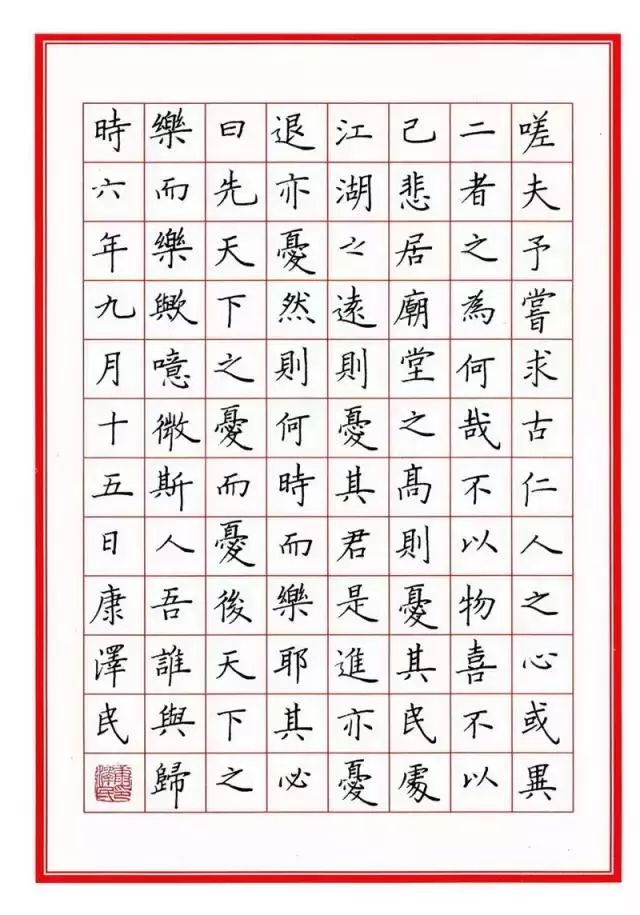 嗟夫予嘗求古仁人之心或異
二者之為何哉不以物喜不以
己悲居廟堂之高則憂其民處
江湖之遠則憂其君是進亦憂
退亦憂然則何時而樂耶其必
曰先天下之憂而憂後天下之
樂而樂歟噫微斯人吾誰與歸
時六年九月十五日康澤民
康澤民印